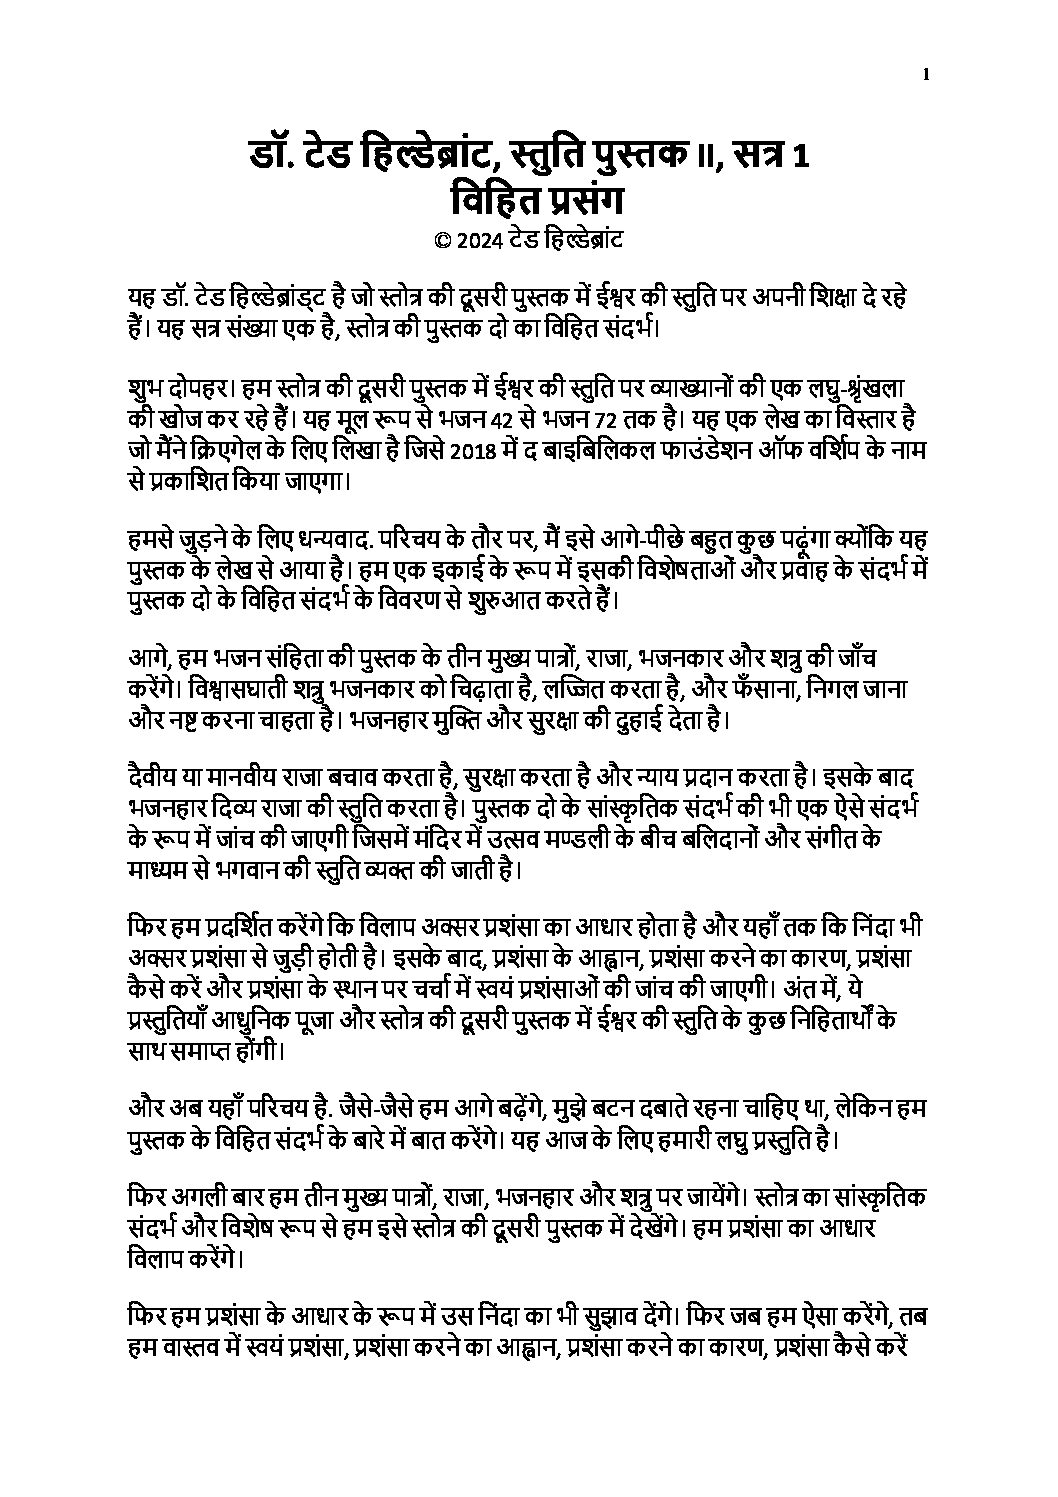 1
डॉ. टेड हिल्डेब्रांट, स्तुति पुस्तक II, सत्र 1
विहित प्रसंग
© 2024 टेड हिल्डेब्रांट
यह डॉ. टेड हिल्डेब्रांड्ट है जो स्तोत्र की दूसरी पुस्तक में ईश्वर की स्तुति पर अपनी शिक्षा दे रहे
हैं। यह सत्र संख्या एक है, स्तोत्र की पुस्तक दो का विहित संदर्भ।
शुभ दोपहर। हम स्तोत्र की दूसरी पुस्तक में ईश्वर की स्तुति पर व्याख्यानों की एक लघु-श्रृंखला
की खोज कर रहे हैं। यह मूल रूप से भजन 42 से भजन 72 तक है। यह एक लेख का विस्तार है
जो मैंने क्रिएगेल के लिए लिखा है जिसे 2018 में द बाइबिलिकल फाउंडेशन ऑफ वर्शिप के नाम
से प्रकाशित किया जाएगा।
हमसे जुड़ने के लिए धन्यवाद. परिचय के तौर पर, मैं इसे आगे-पीछे बहुत कुछ पढ़ूंगा क्योंकि यह
पुस्तक के लेख से आया है। हम एक इकाई के रूप में इसकी विशेषताओं और प्रवाह के संदर्भ में
पुस्तक दो के विहित संदर्भ के विवरण से शुरुआत करते हैं।
आगे, हम भजन संहिता की पुस्तक के तीन मुख्य पात्रों, राजा, भजनकार और शत्रु की जाँच
करेंगे। विश्वासघाती शत्रु भजनकार को चिढ़ाता है, लज्जित करता है, और फँसाना, निगल जाना
और नष्ट करना चाहता है। भजनहार मुक्ति और सुरक्षा की दुहाई देता है।
दैवीय या मानवीय राजा बचाव करता है, सुरक्षा करता है और न्याय प्रदान करता है। इसके बाद
भजनहार दिव्य राजा की स्तुति करता है। पुस्तक दो के सांस्कृतिक संदर्भ की भी एक ऐसे संदर्भ
के रूप में जांच की जाएगी जिसमें मंदिर में उत्सव मण्डली के बीच बलिदानों और संगीत के
माध्यम से भगवान की स्तुति व्यक्त की जाती है।
फिर हम प्रदर्शित करेंगे कि विलाप अक्सर प्रशंसा का आधार होता है और यहाँ तक कि निंदा भी
अक्सर प्रशंसा से जुड़ी होती है। इसके बाद, प्रशंसा के आह्वान, प्रशंसा करने का कारण, प्रशंसा
कैसे करें और प्रशंसा के स्थान पर चर्चा में स्वयं प्रशंसाओं की जांच की जाएगी। अंत में, ये
प्रस्तुतियाँ आधुनिक पूजा और स्तोत्र की दूसरी पुस्तक में ईश्वर की स्तुति के कुछ निहितार्थों के
साथ समाप्त होंगी।
और अब यहाँ परिचय है. जैसे-जैसे हम आगे बढ़ेंगे, मुझे बटन दबाते रहना चाहिए था, लेकिन हम
पुस्तक के विहित संदर्भ के बारे में बात करेंगे। यह आज के लिए हमारी लघु प्रस्तुति है।
फिर अगली बार हम तीन मुख्य पात्रों, राजा, भजनहार और शत्रु पर जायेंगे। स्तोत्र का सांस्कृतिक
संदर्भ और विशेष रूप से हम इसे स्तोत्र की दूसरी पुस्तक में देखेंगे। हम प्रशंसा का आधार
विलाप करेंगे।
फिर हम प्रशंसा के आधार के रूप में उस निंदा का भी सुझाव देंगे। फिर जब हम ऐसा करेंगे, तब
हम वास्तव में स्वयं प्रशंसा, प्रशंसा करने का आह्वान, प्रशंसा करने का कारण, प्रशंसा कैसे करें